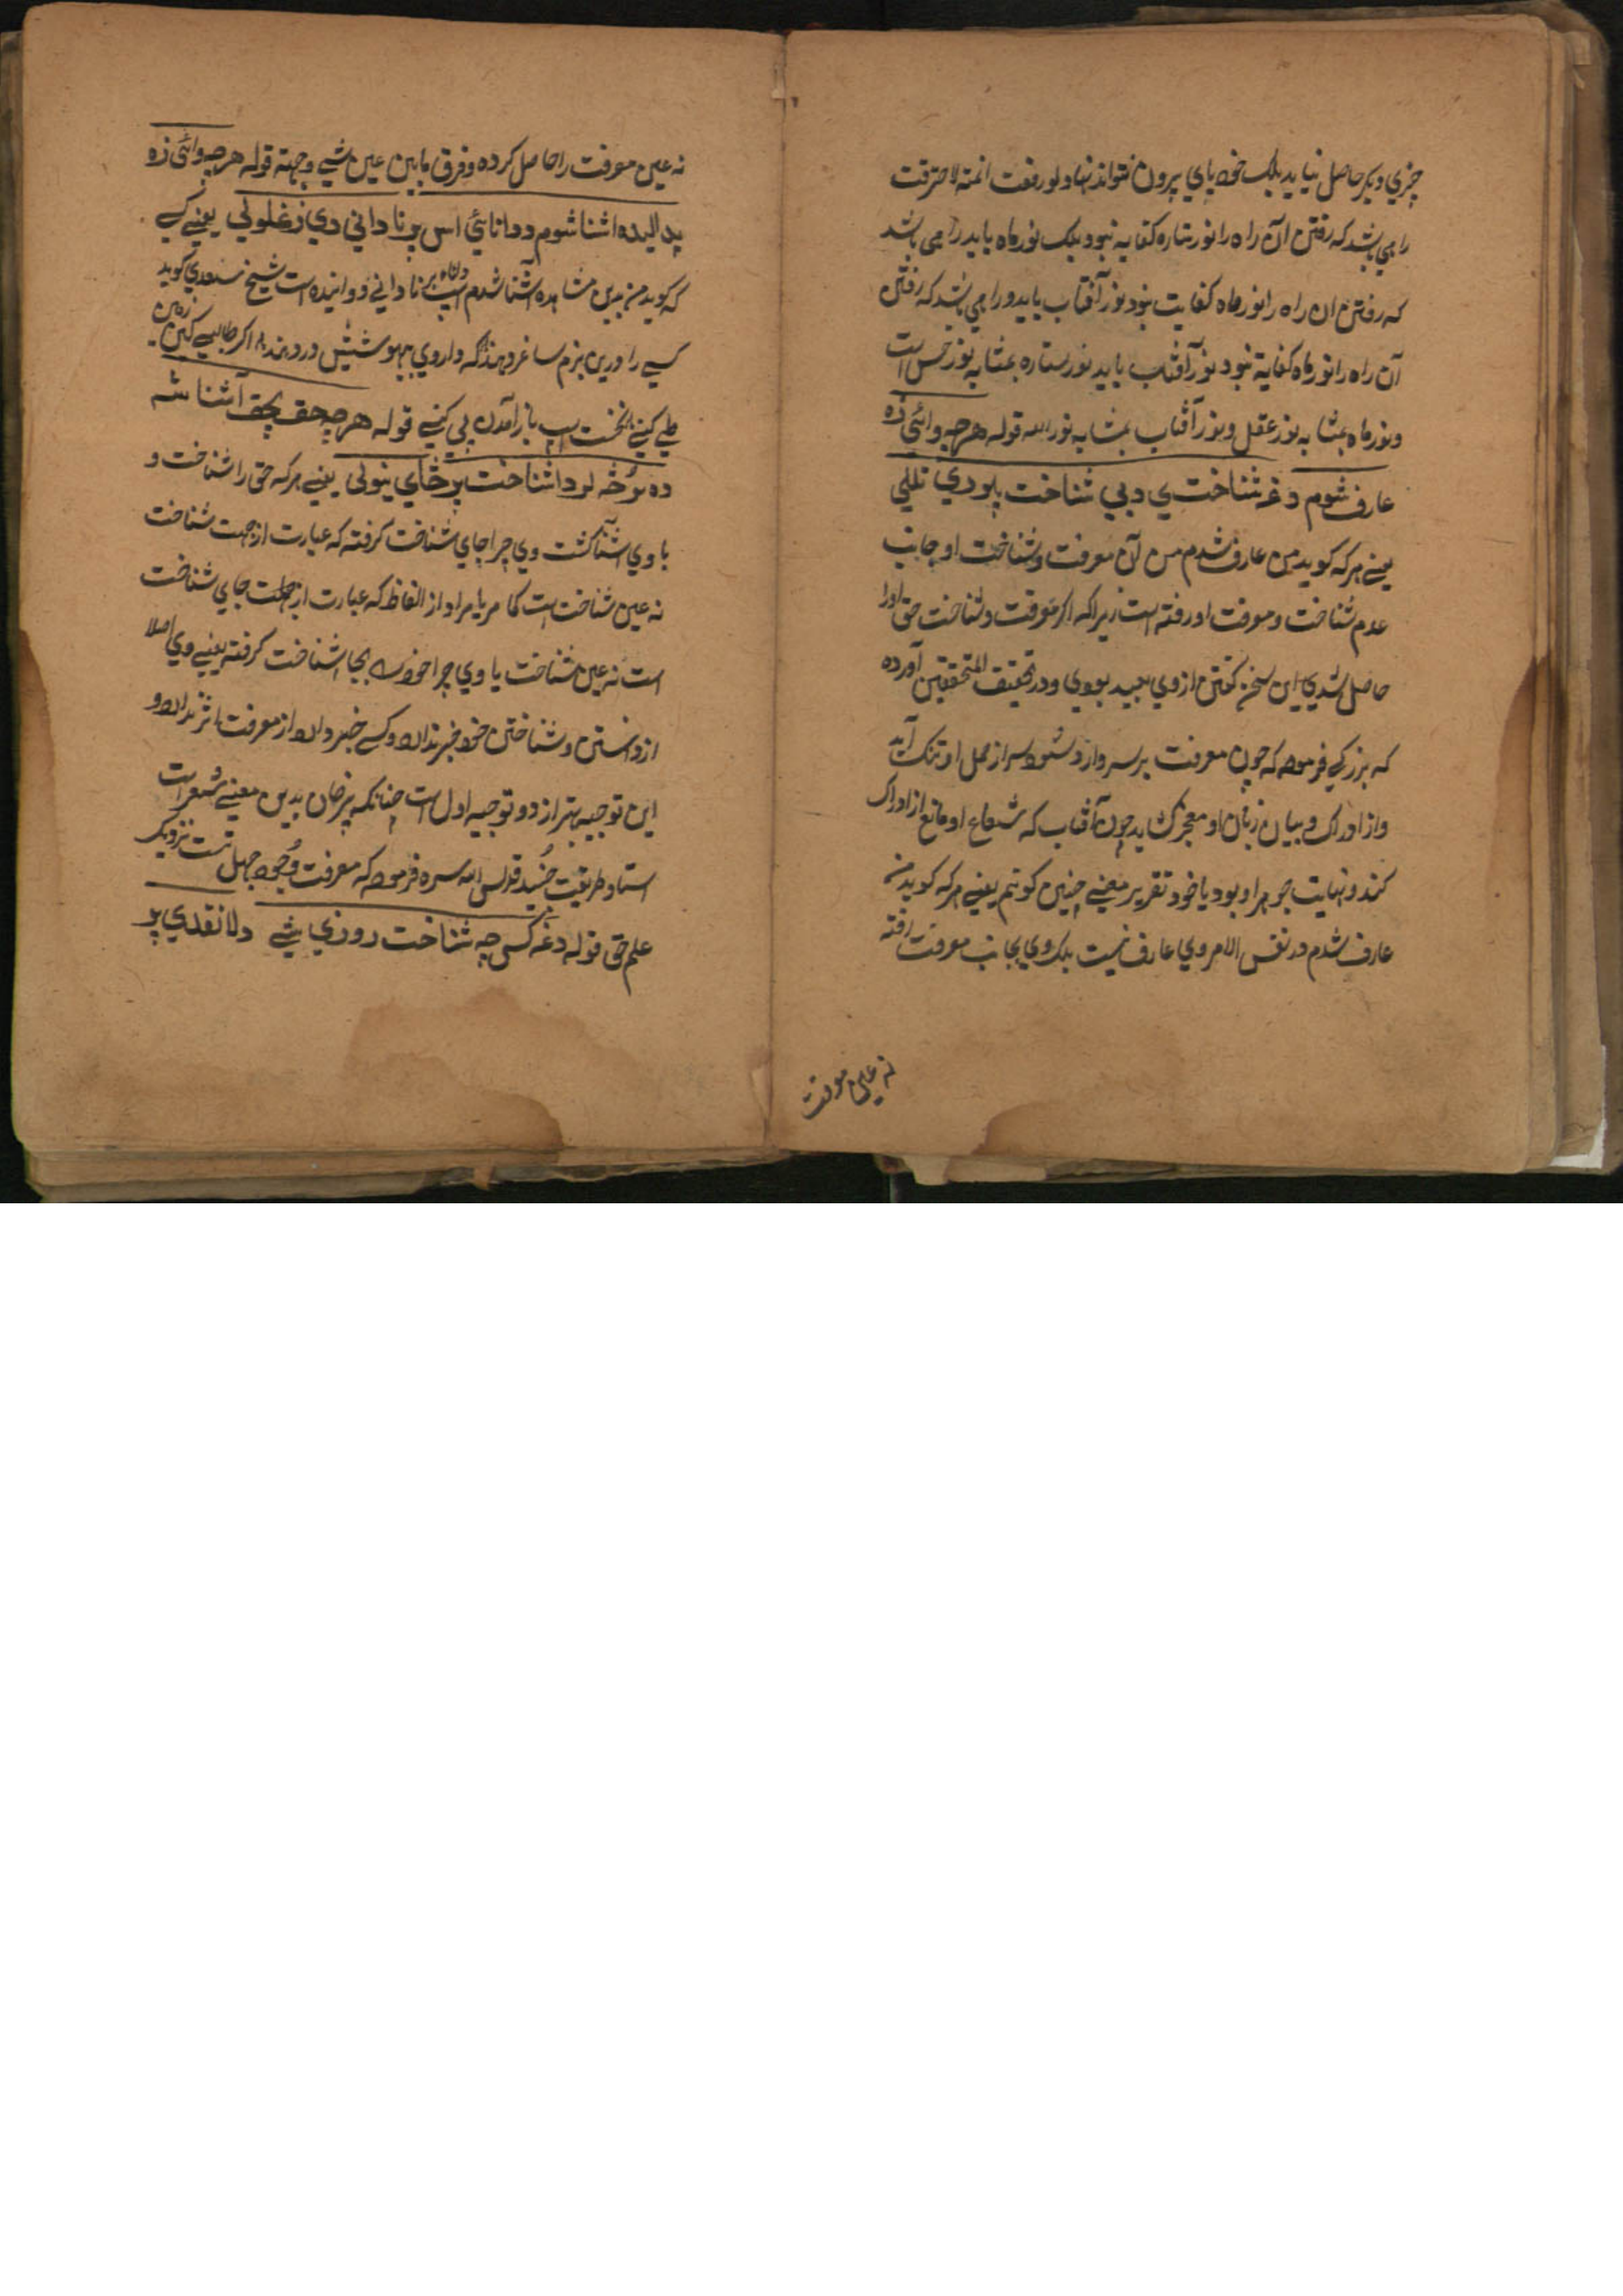 چیزی دیگر حاصل نیاید بلک خود پای بیرون نتواند نهاد و لو رفعت انملة لاحترقت
را می باشد که رفتن آن راه را نور ستاره کفایه نبود بلک نور ماه باید را می باشد
که رفتن ان راه را نور ماه کفایت نبود نور آفتاب باید و را می باشد که رفتن
آن راه را نور ماه کفایه نبود نور آفتاب باید نور ستاره بمثابه نور حس است
و نور ماه بمثابه نور عقل و نور آفتاب بمثابه نور الله قوله هر چه وائی زه
عارف شوم دغه شناخت ي د بي شناخت پلوري تللي
یعنے هر که کوید من عارف شدم من آن معرفت و شناخت او جانب
عدم شناخت و معرفت او رفته است زیرا که اکر معرفت و شناخت حق اورا
حاصل شدي این سخن کفتن ازوي بعید بودی و در تحقیق المحققین آورده
که بزرکے فرموده که چون معرفت بر سر وارد شود سر از حمل او تنک آید
و از ادراک و بیان زبان او معجز کاید چون آفتاب که شعاع او مانع از ادراک
کند و نهایت جوهر او بود یا خود تقریر معنے چنین کوئم یعنے هر که کوید من
عارف شدم در نفس الامر وي عارف نیست بلک وي بجانب معرفت رفته
نه عین معرفت
نه عین معرفت را حاصل کرده و فرق مابین عین شے و جهة قوله هر چه وائی زه
په لیده اشنا شوم د دانائي اس پر نا داني دي زغلولي یعنے کسے
که کوید من بدین مشاهده آشنا شدم اسپ دانائے بر نا دانے دوانیده است شیخ سعدي کوید
کسے را درین بزم ساغر دهند که داروي بیهوشیش در دهند اکر طالبے کین زمین
طے کنے نخست اسپ باز آمدن پی کنے قوله هر چه حق بحق آشنا شه
ده نو څه لره د اشناخت پر ځاي ینولی یعنے هر که حق را شناخت و
با وي اشنا کشت وي چرا جاي شناخت کرفته که عبارت از جهت شناخت
نه عین شناخت است کما مر یا مراد از الفاظ که عبارت از جهلت جاي شناخت
است نه عین شناخت یا وي چرا خود را بجا شناخت کرفته یعنے وي اصلا
از دانستن و شناختن خود خبر ندارد و کسے خبر دارد از معرفت اثر ندارد و
این توجیه بهتر از دو توجیه اول است چنانکه پیر خان بدین معنے شعر است
استاد طریقت جنید قدس الله سره فرموده که معرفت وجود جهل تست نزدیک
علم حق قوله دغه کس چه شناخت روزي یئي شے دلا نقدي پر